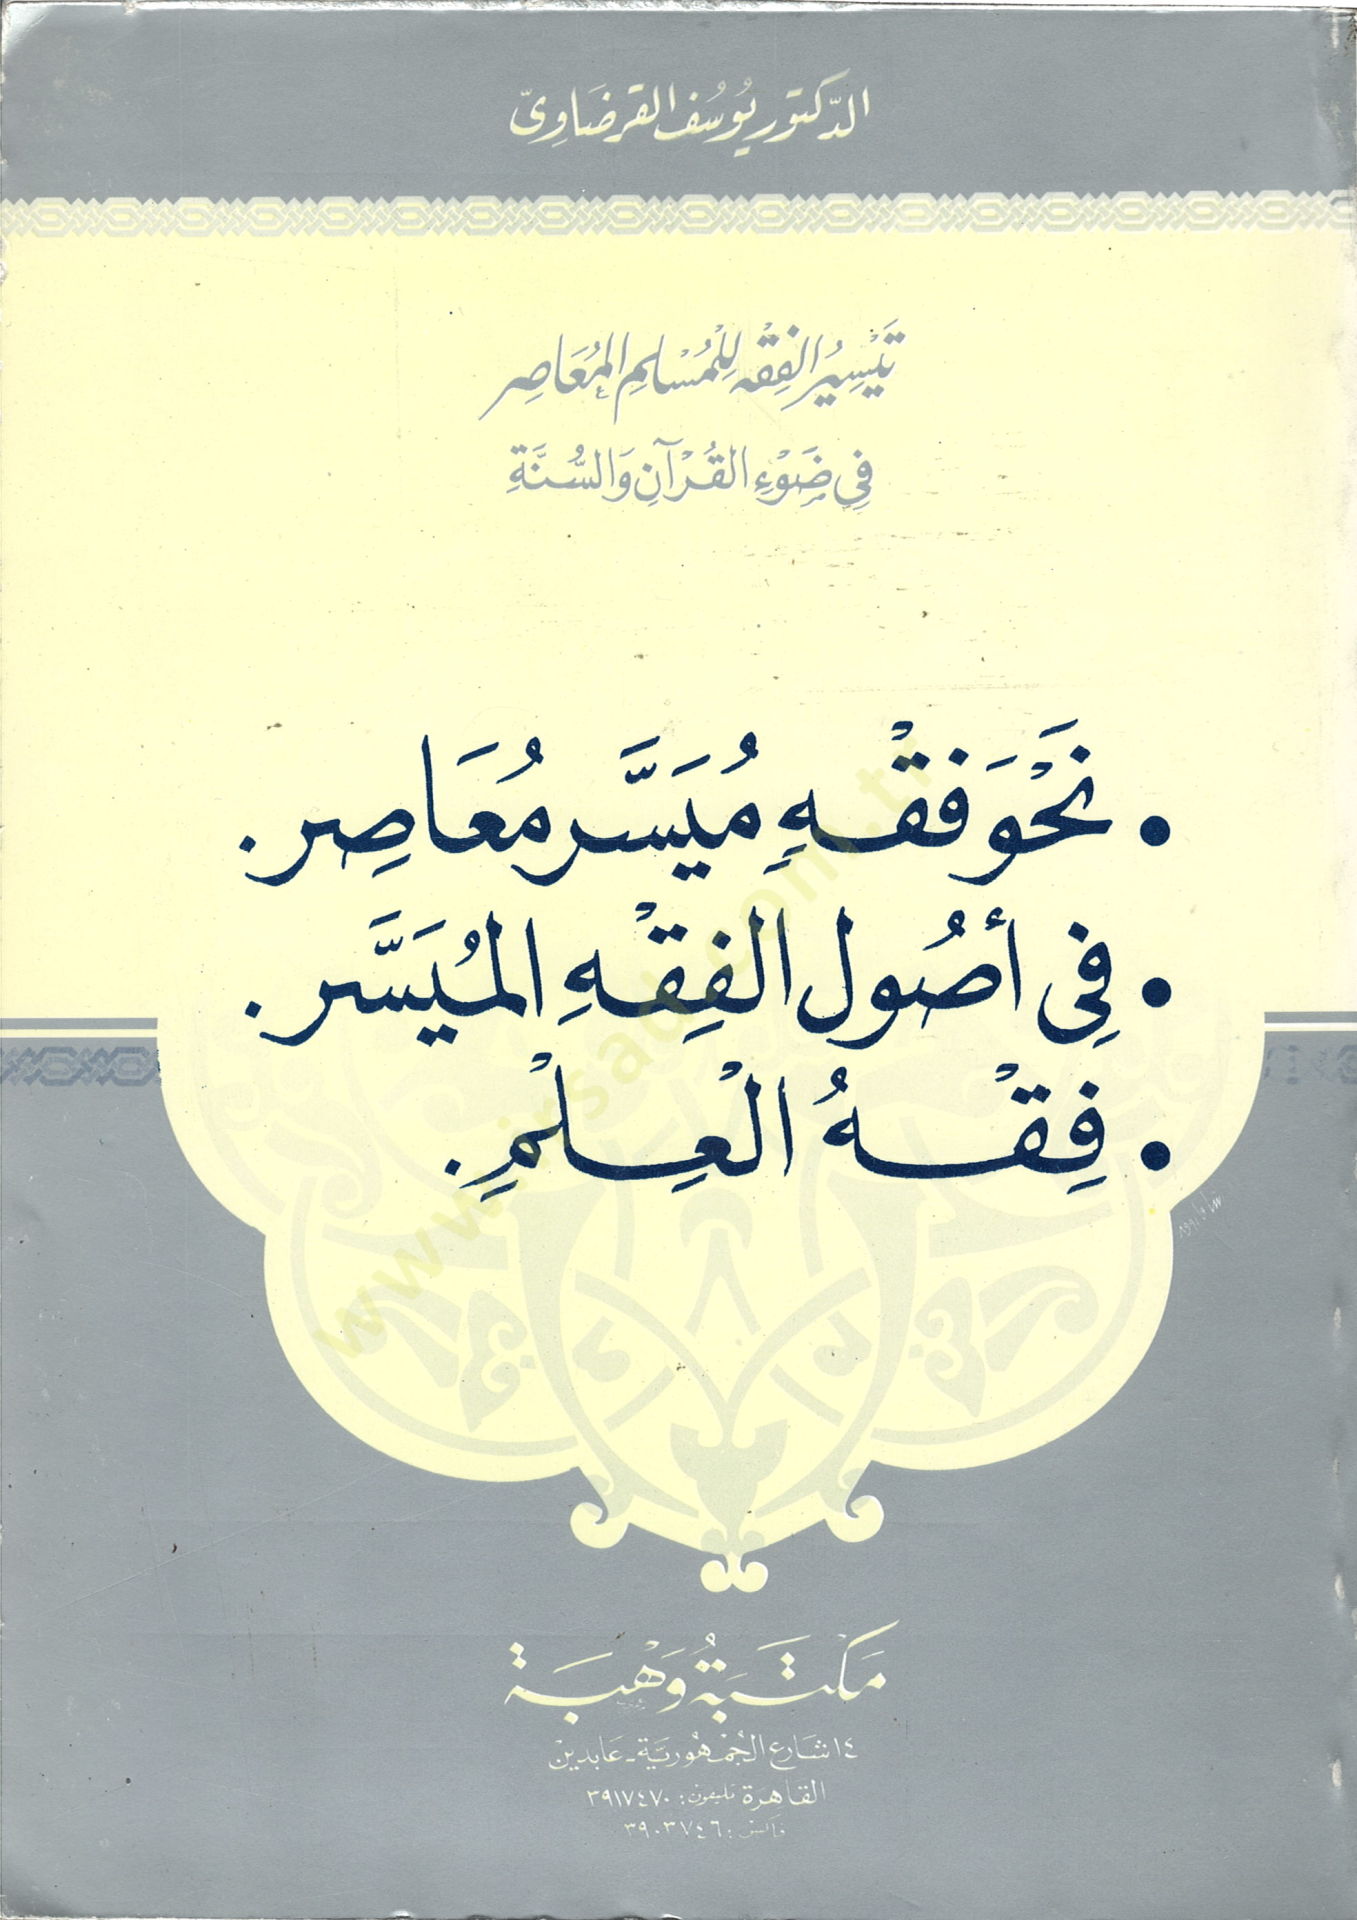 الدّكتور يُوسُف القرضَاوِىّ
تَيْسِيرُ الفِقْهِ لِلْمُسْلِمِ المُعَاصِرِ
فِي ضَوْءِ القُرْآنِ وَالسُّنَّةِ
• نَحْوَ فِقْهٍ مُيَسَّر مُعَاصِر.
• فِى أصُول الفِقْهِ المُيَسَّر.
• فِقْهُ الْعِلْمِ.
www.irsad.com.tr
مَكتَبَة وَهْبَة
١٤ شارع الجُمْهُوريَّة - عَابدين
القاهرة تليفون: ٣٩١٧٤٧٠
فاكس: ٣٩٠٣٧٤٦